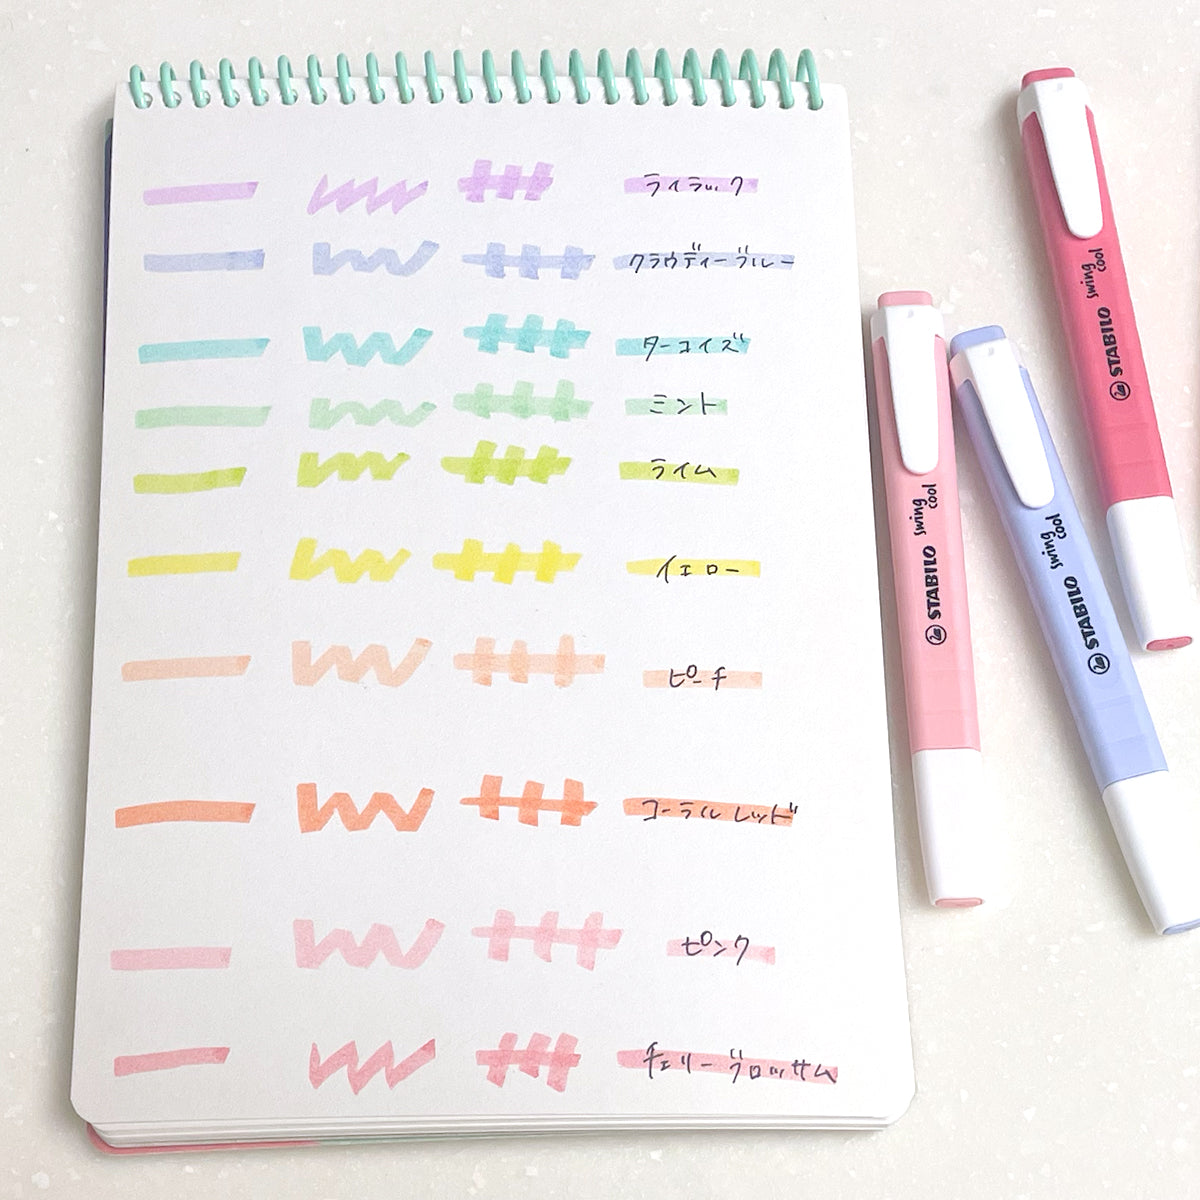 ライラック
クラウディーブルー
ターコイズ
ミント
ライム
イエロー
ピーチ
コーラルレッド
ピンク
チェリーブロッサム
STABILO swing cool
STABILO swing cool
STABILO swing cool